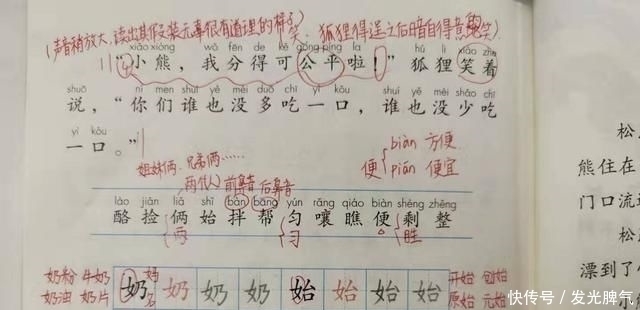 (声音稍放大,读出其假装无辜很有道理的样子。笑:狐狸得逞之后暗自得意的笑)
xiǎo xióng wǒ fēn de kě gōng píng la hú li xiào zhe
“小熊,我分得可公平啦!”狐狸笑着
shuō nǐ men shuí yě méi duō chī yì kǒu shuí yě méi shǎo chī
说,“你们谁也没多吃一口,谁也没少吃
yì kǒu
一口。”
姐妹俩、兄弟俩……
(两个人) 前鼻音 后鼻音
便 biàn 方便
pián 便宜
lào jiǎn liǎ shǐ bàn bāng yún rǎng qiáo biàn shèng zhěng
酪捡俩始拌帮匀嚷瞧便剩整
两 习 胜
奶粉 牛奶
奶油 奶片
奶 奶 奶 奶 始 始 始 始
妈
开始 创始
原始 元始
松
熊住在
门口流
松
漂到了
小
快传号 / 发光脾气